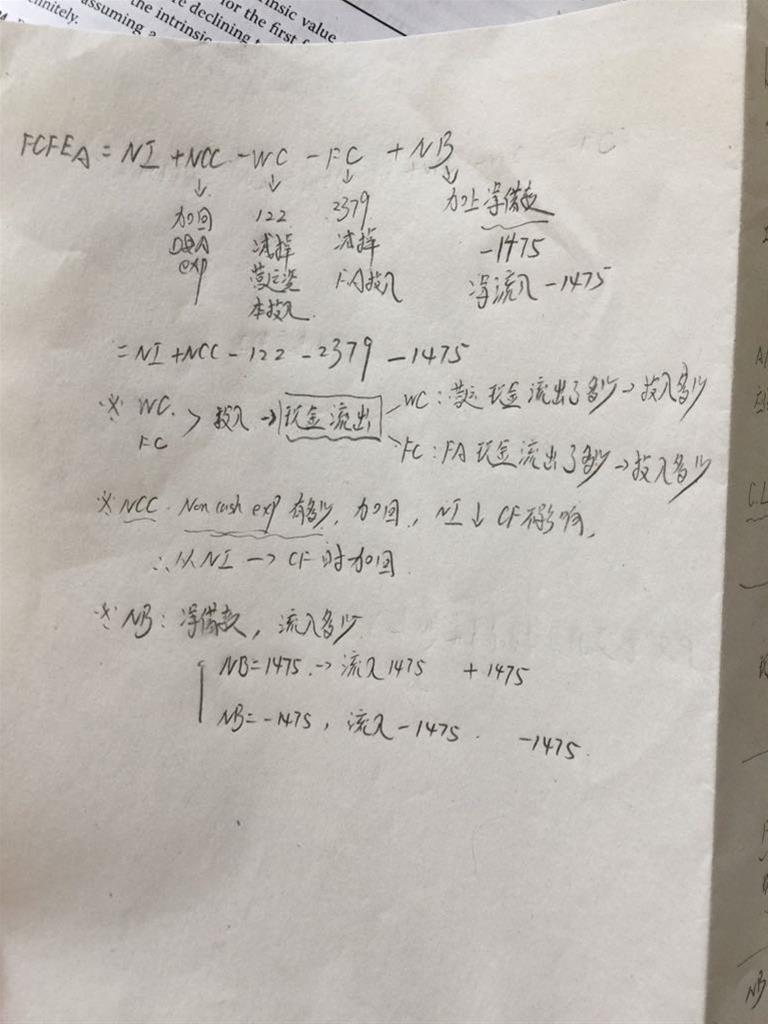 insic value
for the first f
e declining t
the intrinsic
assuming a
finitely.
FCFEA = NI + NCC - WC - FC + NB
↓ ↓ ↓ ↓
加回 122 2379 加上净借款
D&A 减掉 减掉 -1475
exp 营运资 FA投入 净流入 -1475
本投入
= NI + NCC - 122 - 2379 - 1475
※ WC. FC > 投入 → 现金流出
WC : 营运现金流出了多少 → 投入多少
FC : FA 现金流出了多少 → 投入多少
※ NCC. Non cash exp 有多少, 加回, NI ↓ CF 不影响,
∴ 从 NI → CF 时加回
※ NB : 净借款, 流入多少
NB = 1475. → 流入 1475 + 1475
NB = -1475, 流入 -1475. -1475.
NB